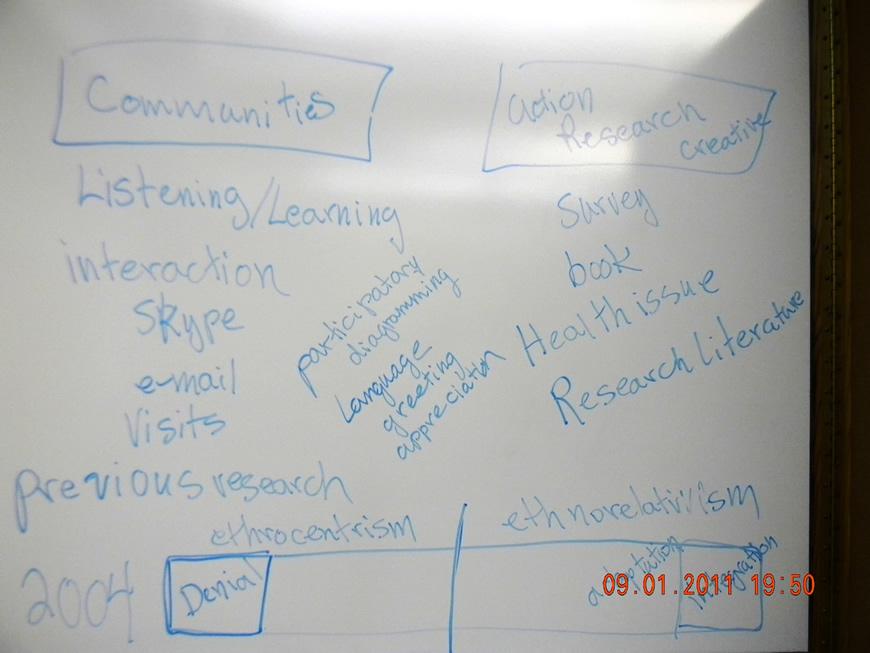 Communities
Listening/Learning
interaction
Skype
e-mail
Visits
previous research
participatory
diagramming
Language
greeting
appreciation
action
Research
creative
Survey
book
Health issue
Research literature
ethrocentrism
ethnorelativiism
2004
Denial
adaptation
integration
09.01.2011 19:50